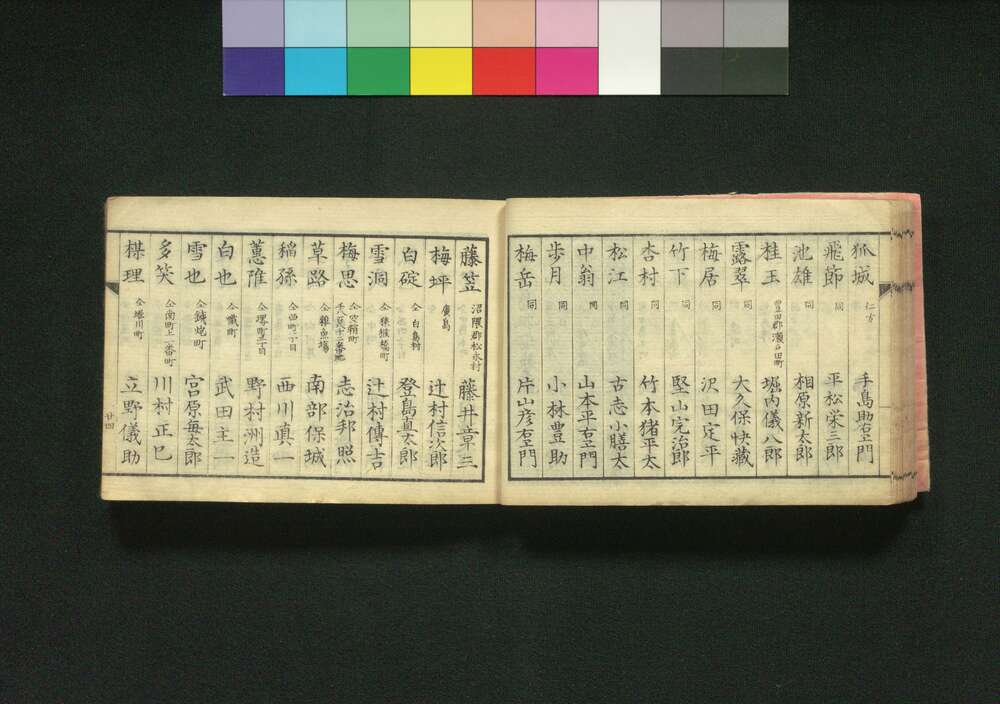 狐城 仁方 手島助右エ門
飛節 同 平松栄三郎
池雄 同 相原新太郎
桂玉 豊田郡瀬戸田町 堀内儀八郎
露翠 同 大久保快蔵
梅居 同 沢田定平
竹下 同 堅山完治郎
杏村 同 竹本猪平太
松江 同 古志小膳太
中翁 同 山本平右エ門
歩月 同 小林豊助
梅岳 同 片山彦右エ門
藤笠 沼隈郡松永村 藤井章三
梅坪 廣島 辻村信次郎
白碇 仝白島村 登島真太郎
雪洞 仝猿猴橋町 辻村傳吉
梅思 仝空鞘町 志治邦照
草路 仝雜魚場 南部保城
稲孫 仝西町二丁目 西川真一
蕙陏 仝堺町三丁目 野村洲造
白也 仝畳町 武田主一
雪也 仝鉄炮町 宮原毎太郎
多笑 仝南町上一番町 川村正巳
棋理 仝堀川町 立野儀助
廿四